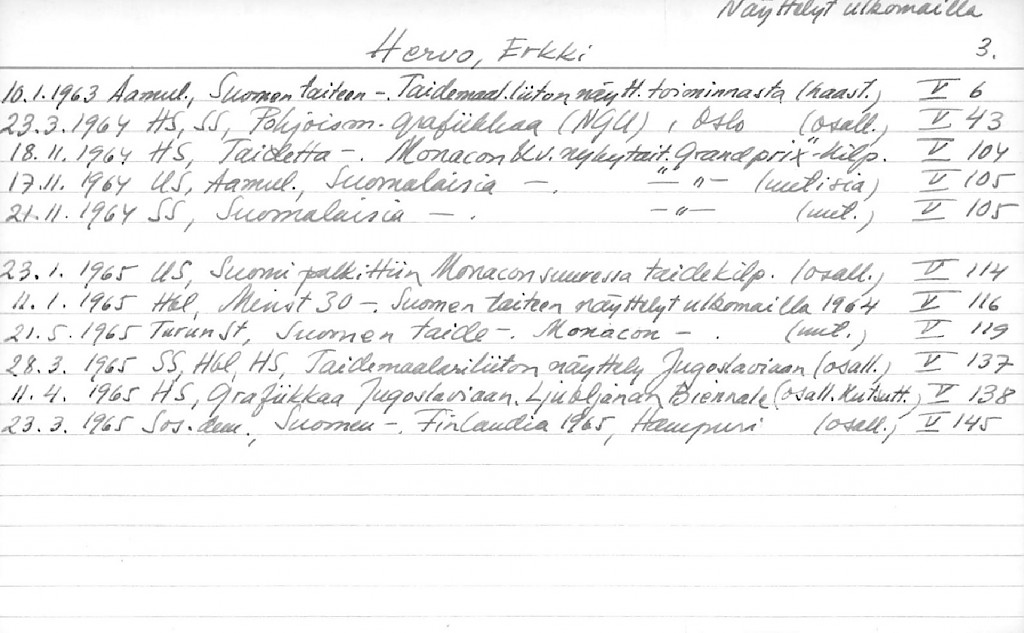 Näyttelyt ulkomailla
Hervo, Erkki 3.
10.1.1963 Aamul., Suomen taiteen -. Taidemaal.liiton näytt. toiminnasta (haast.) V 6
23.3.1964 HS, SS, Pohjoism. grafiikkaa (NGU), Oslo (osall.) V 43
18.11.1964 HS, Taidetta -. Monacon kv. nykytait. "Grand prix"-kilp. V 104
17.11.1964 US, Aamul., Suomalaisia -. -"- (uutisia) V 105
21.11.1964 SS, Suomalaisia -. -"- (uut.) V 105
23.1.1965 US, Suomi palkittiin Monacon suuressa taidekilp. (osall.) V 114
11.1.1965 Hbl, Minst 30 - Suomen taiteen näyttelyt ulkomailla 1964 V 116
21.5.1965 Turun St, Suomen taide -. Monacon - . (uut.) V 119
28.3.1965 SS, Hbl, HS, Taidemaalariliiton näyttely Jugoslaviaan (osall.) V 137
11.4.1965 HS, Grafiikkaa Jugoslaviaan. Ljubljanan Biennale (osall. kutsutt.) V 138
23.3.1965 Sos.dem., Suomen -. Finlandia 1965, Hampuri (osall.) V 145